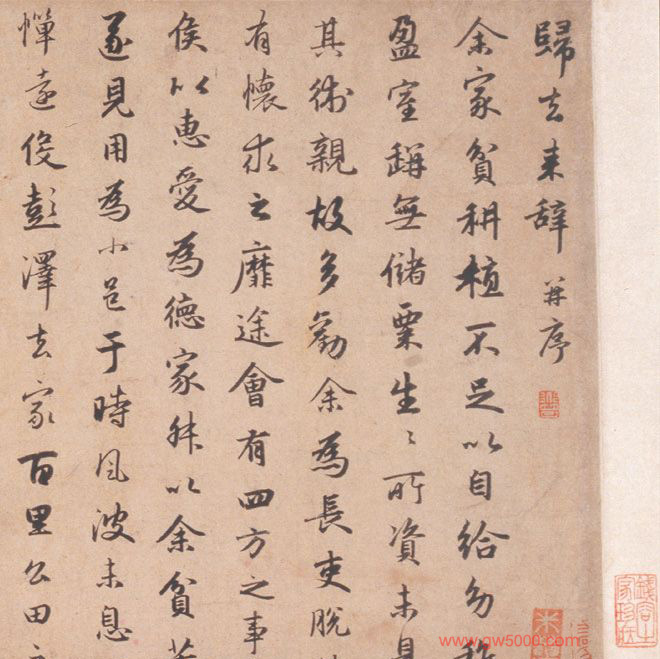 歸去来辞 并序
余家貧耕植不足以自給幼稚
盈室缾無儲粟生〻所資未見
其術親故多勸余為長吏脫
有懷求之靡途會有四方之事
侯以惠愛為德家叔以余貧苦
遂見用為小邑于時風波未息
憚遠役彭澤去家百里公田
www.gw5000.com